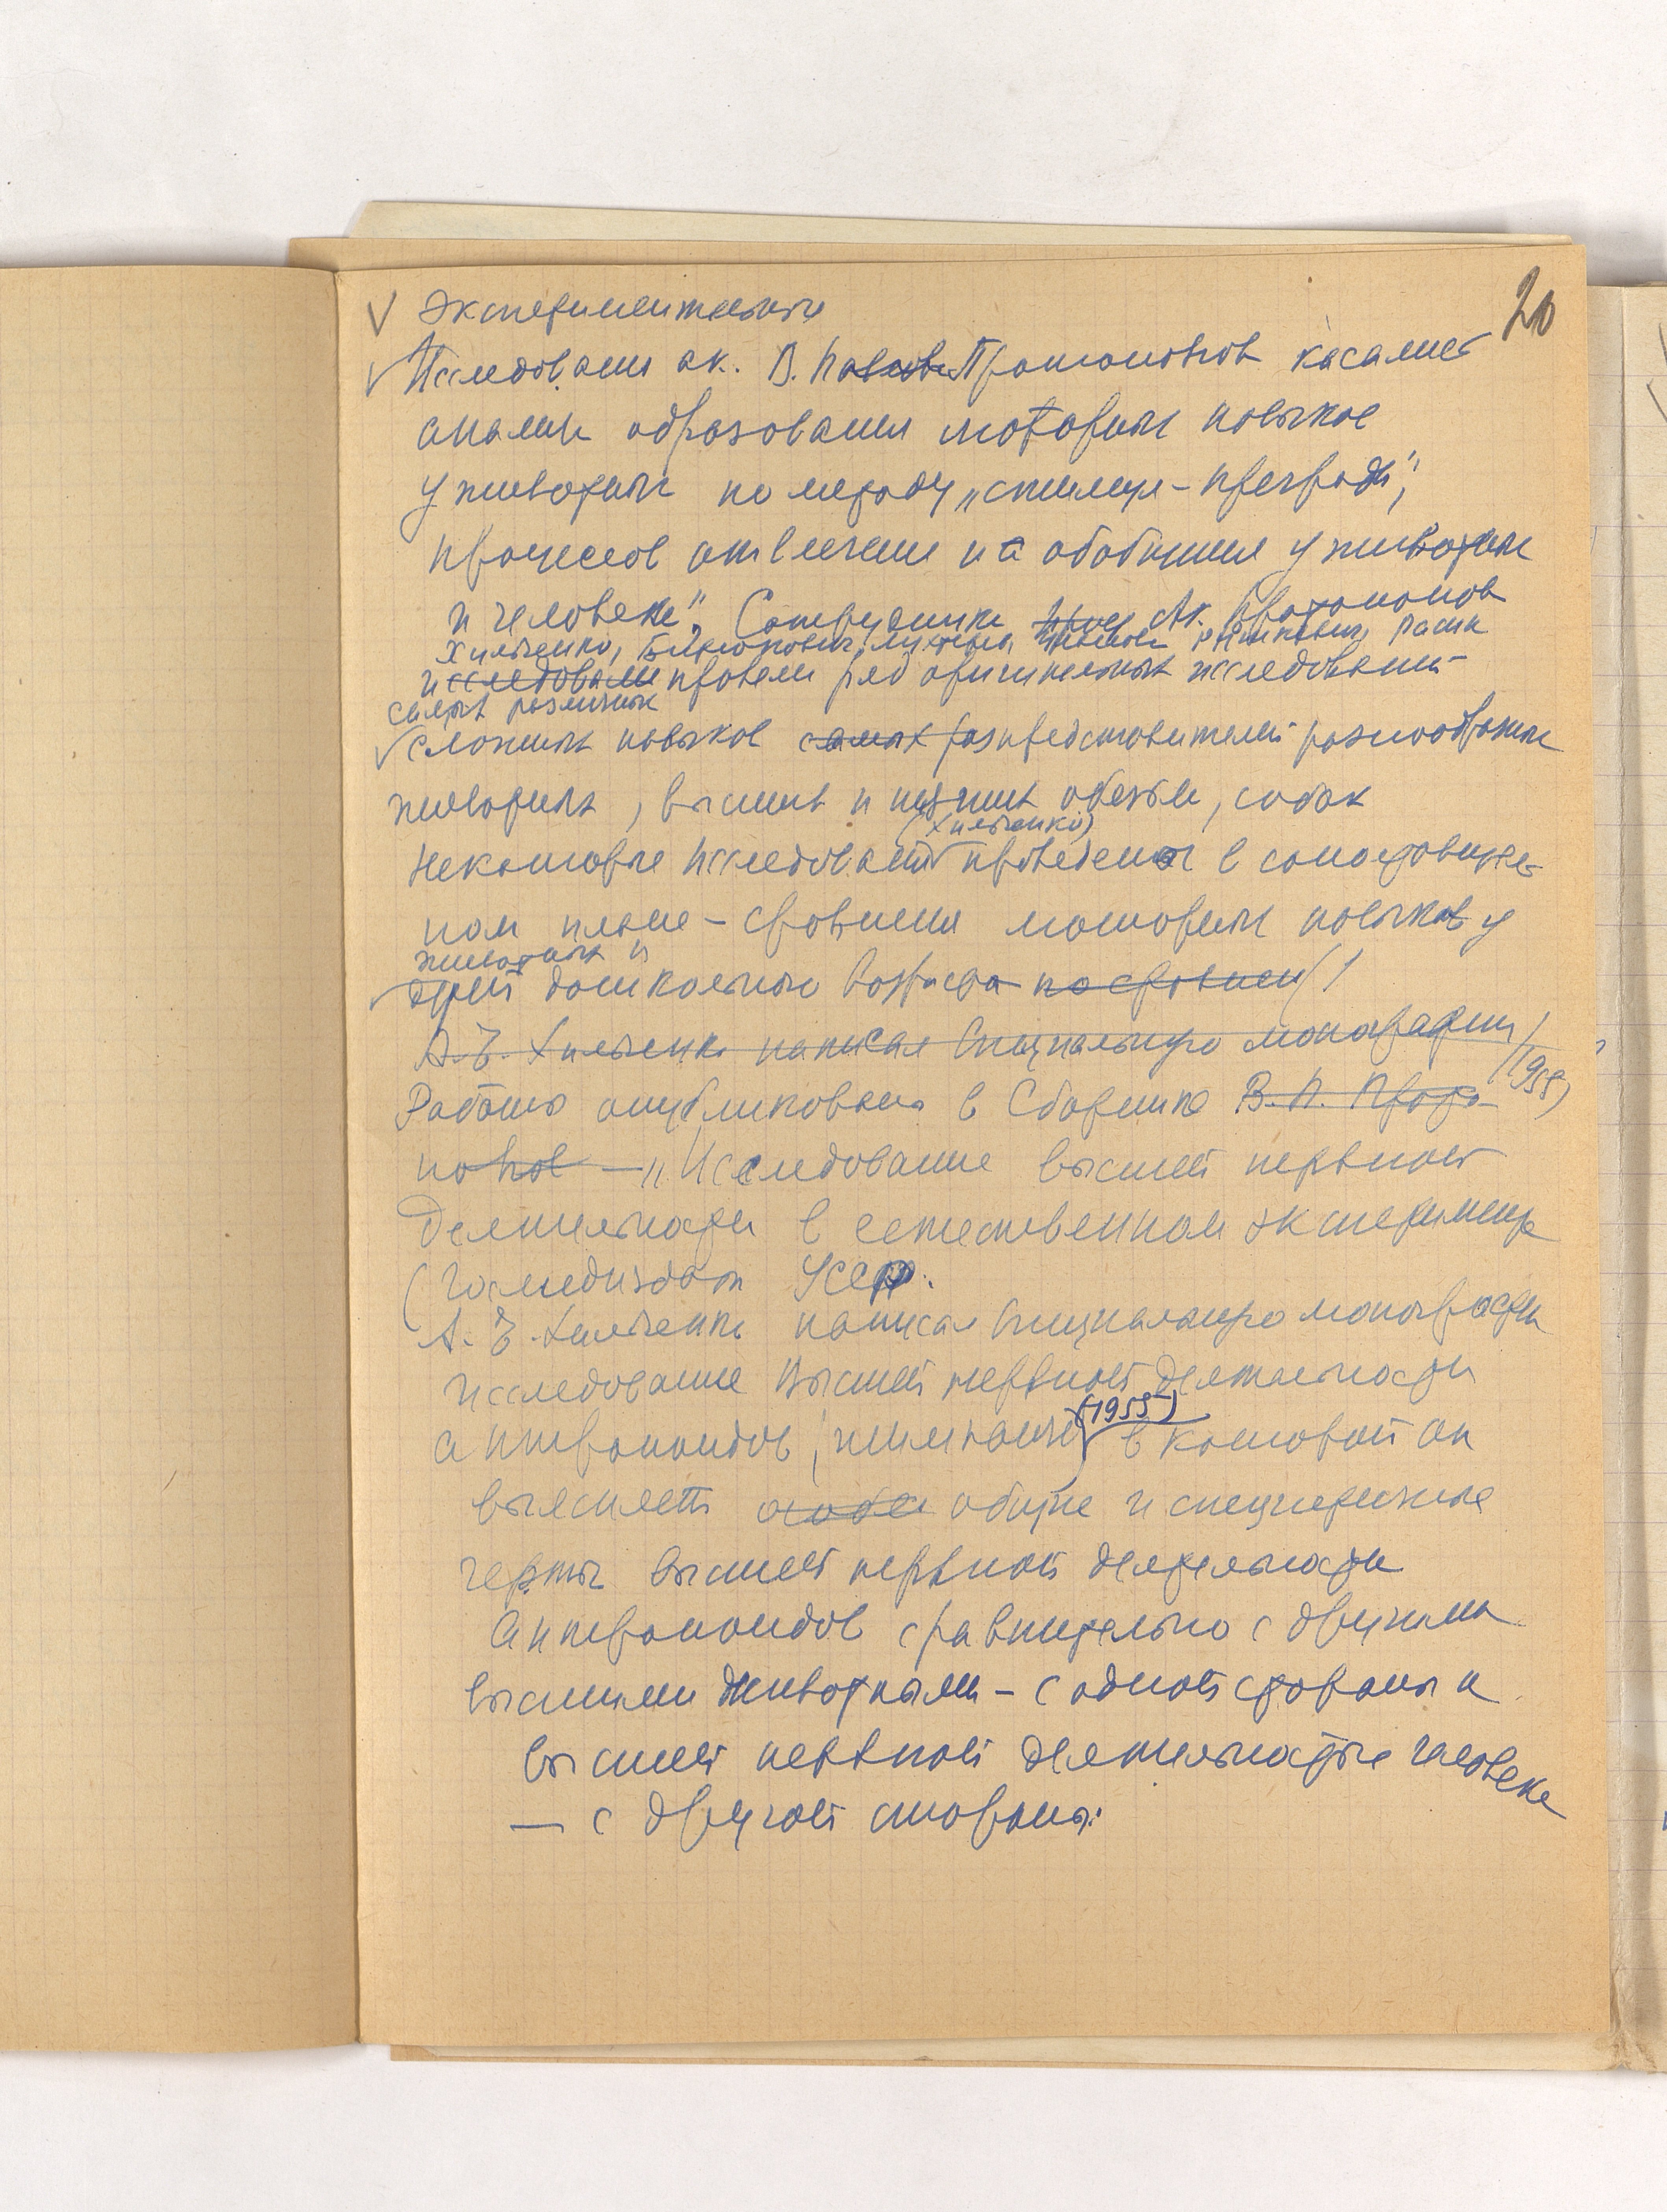 20
Экспериментальные
Исследования ак. В. Павлов Протопопов касались
анализа образования моторных навыков
у животных по методу „стимул-преграды",
процессов отвлечения и обобщения у животных
и человека". Сотрудники проф Ак. Протопопов
Хильченко, Рашн
исследовали провели ряд оригинальных исследований
самых различных
сложных навыков самых раз представителей разнообразных
животных, высших и низших обезьян, собак
(Хильченко)
Некоторые исследования проведены в
ном плане – сравнения моторных навыков у
животных и
детей дошкольного возраста по сравнен
А.З. Хильченко написал специальную монографию
(1955)
Работы опубликованы в Сборнике В.П. Прото-
попов – „Исследование высшей нервной
деятельности в естественном эксперименте
(Госмедиздат УССР.
А.З. Хильченко написал специальную монографию
Исследование Высшей нервной деятельности
(1955)
антропоидов, шимпанзе в которой он
выясняет особен общие и специфические
черты высшей нервной деятельности
Антропоидов сравнительно с другими
высшими животными – с одной стороны и
высшей нервной деятельностью человека
– с другой стороны.